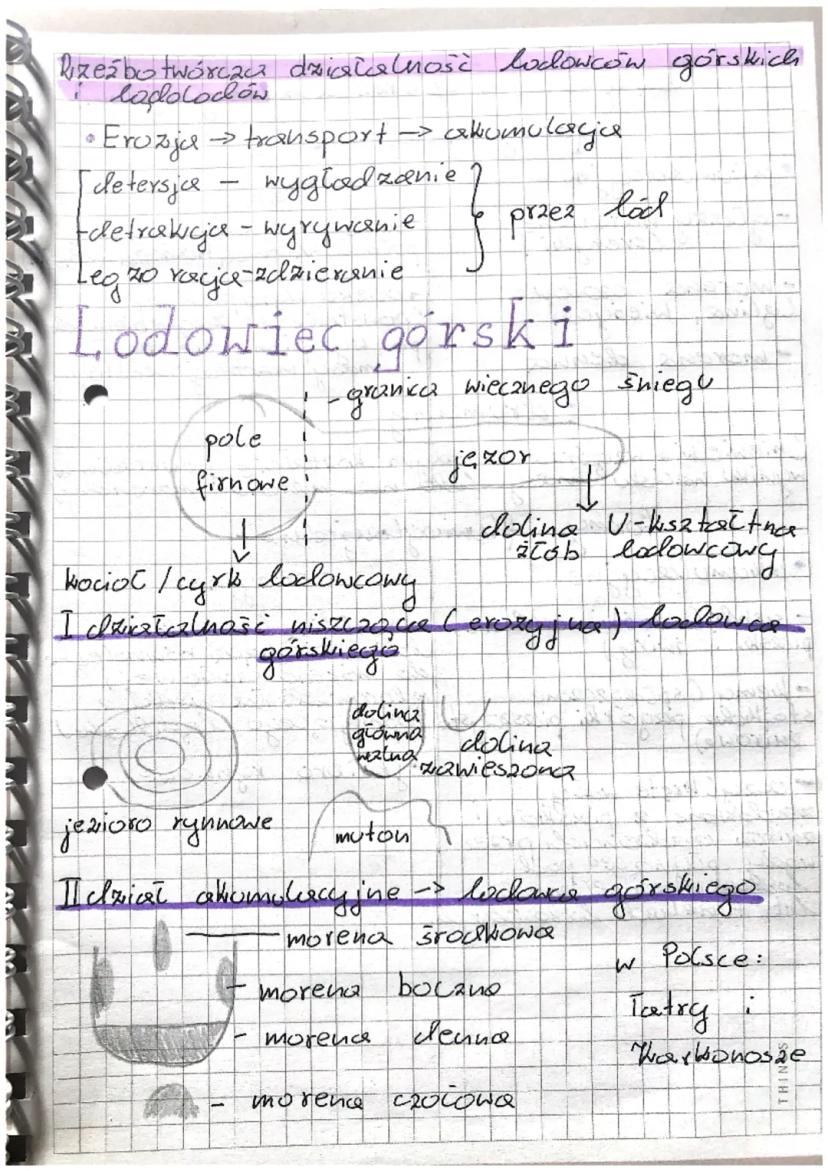 Rzeźbotwórcza działalność lodowców górskich
i lądolodów
• Erozja → transport → akumulacja
detersja - wygładzanie
detrakcja - wyrywanie
egzoracja - zdzieranie
przez lód
Lodowiec górski
- granica wiecznego śniegu
pole
firnowe
jęzor
dolina U-kształtna
żłób lodowcowy
kocioł / cyrk lodowcowy
I działalność niszcząca (erozyjna) lodowca
górskiego
dolina
główna
walna
dolina
zawieszona
jezioro rynnowe
muton
II dział akumulacyjne → lodowca górskiego
morena środkowa
- morena boczna
- morena denna
- morena czołowa
w Polsce:
Tatry i
Karkonosze
THINGS